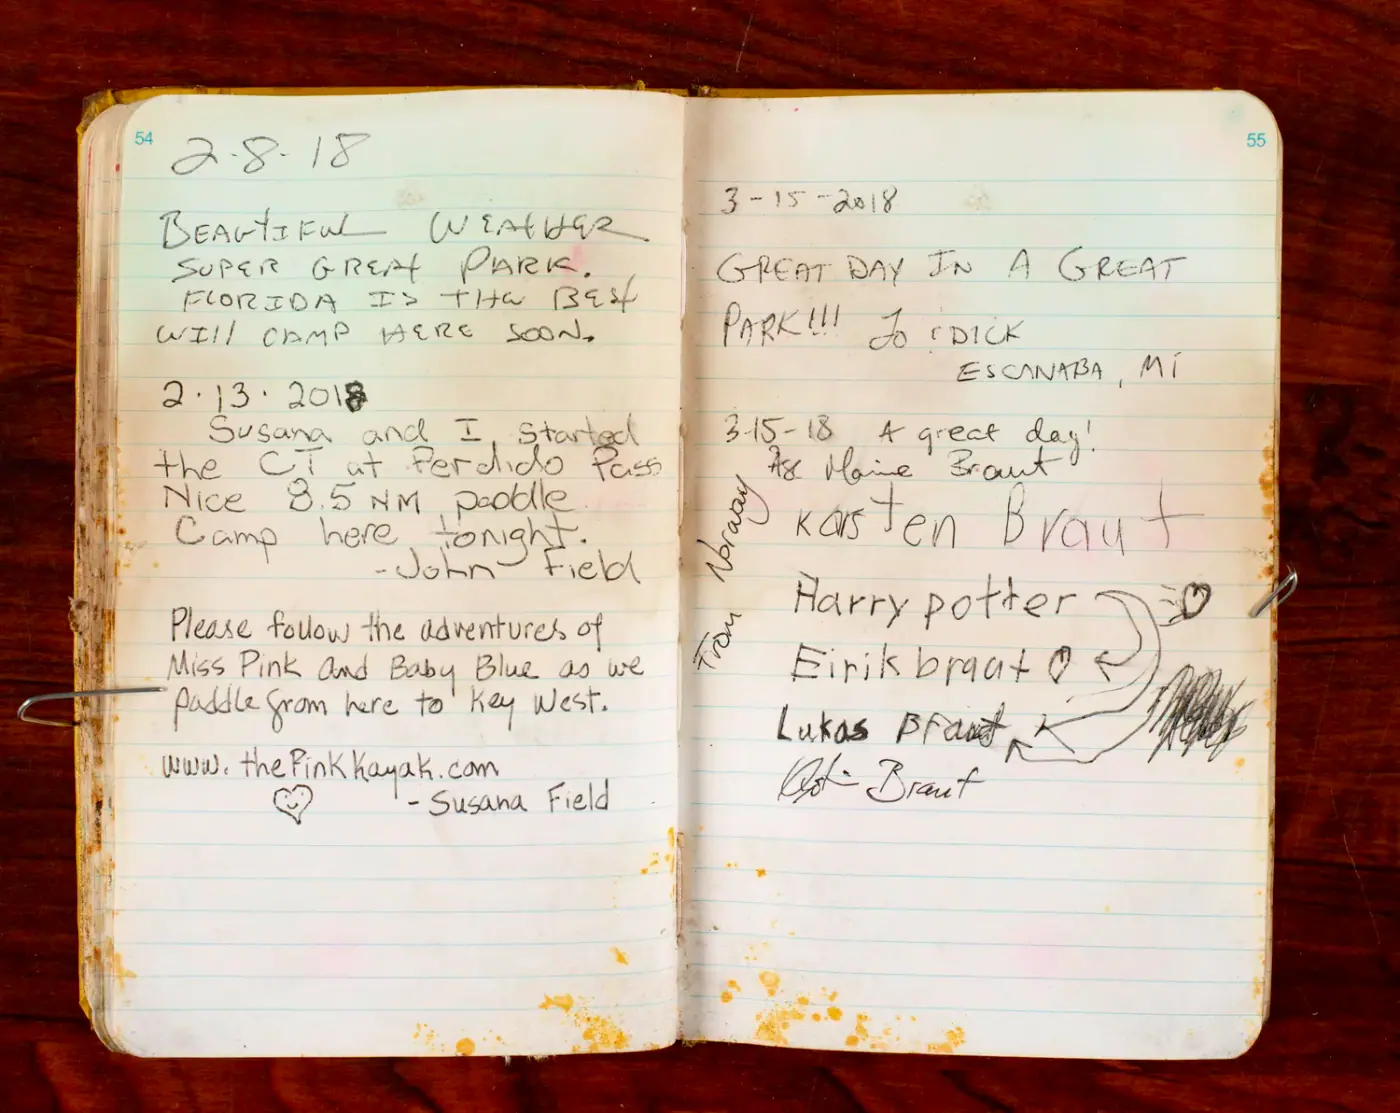 54
2-8-18
BEAUTIFUL WEATHER
SUPER GREAT PARK.
FLORIDA IS THE BEST
WILL CAMP HERE SOON.
2.13.2018
Susana and I started
the CT at Perdido Pass
Nice 8.5 NM paddle
Camp here tonight.
-John Field
Please follow the adventures of
Miss Pink and Baby Blue as we
paddle from here to Key West.
www.thePinkKayak.com
-Susana Field
55
3-15-2018
GREAT DAY IN A GREAT
PARK!!! Jo : DICK
ESCANABA, MI
3-15-18 A great day!
Braut
Karsten Braut
From Norway
Harry potter
Eirik braut
Lukas Braut
Braut